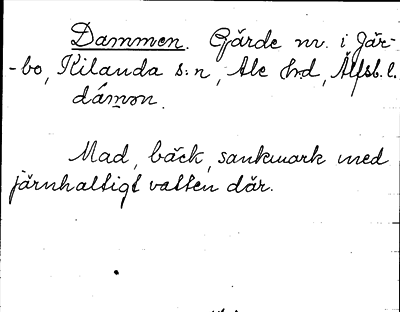 Dammen. Gärde nv. i Jär-
-bo, Kilanda s:n, Ale hrd, Älfsb. l.
dámən.
Mad, bäck, sankmark med
järnhaltigt vatten där.